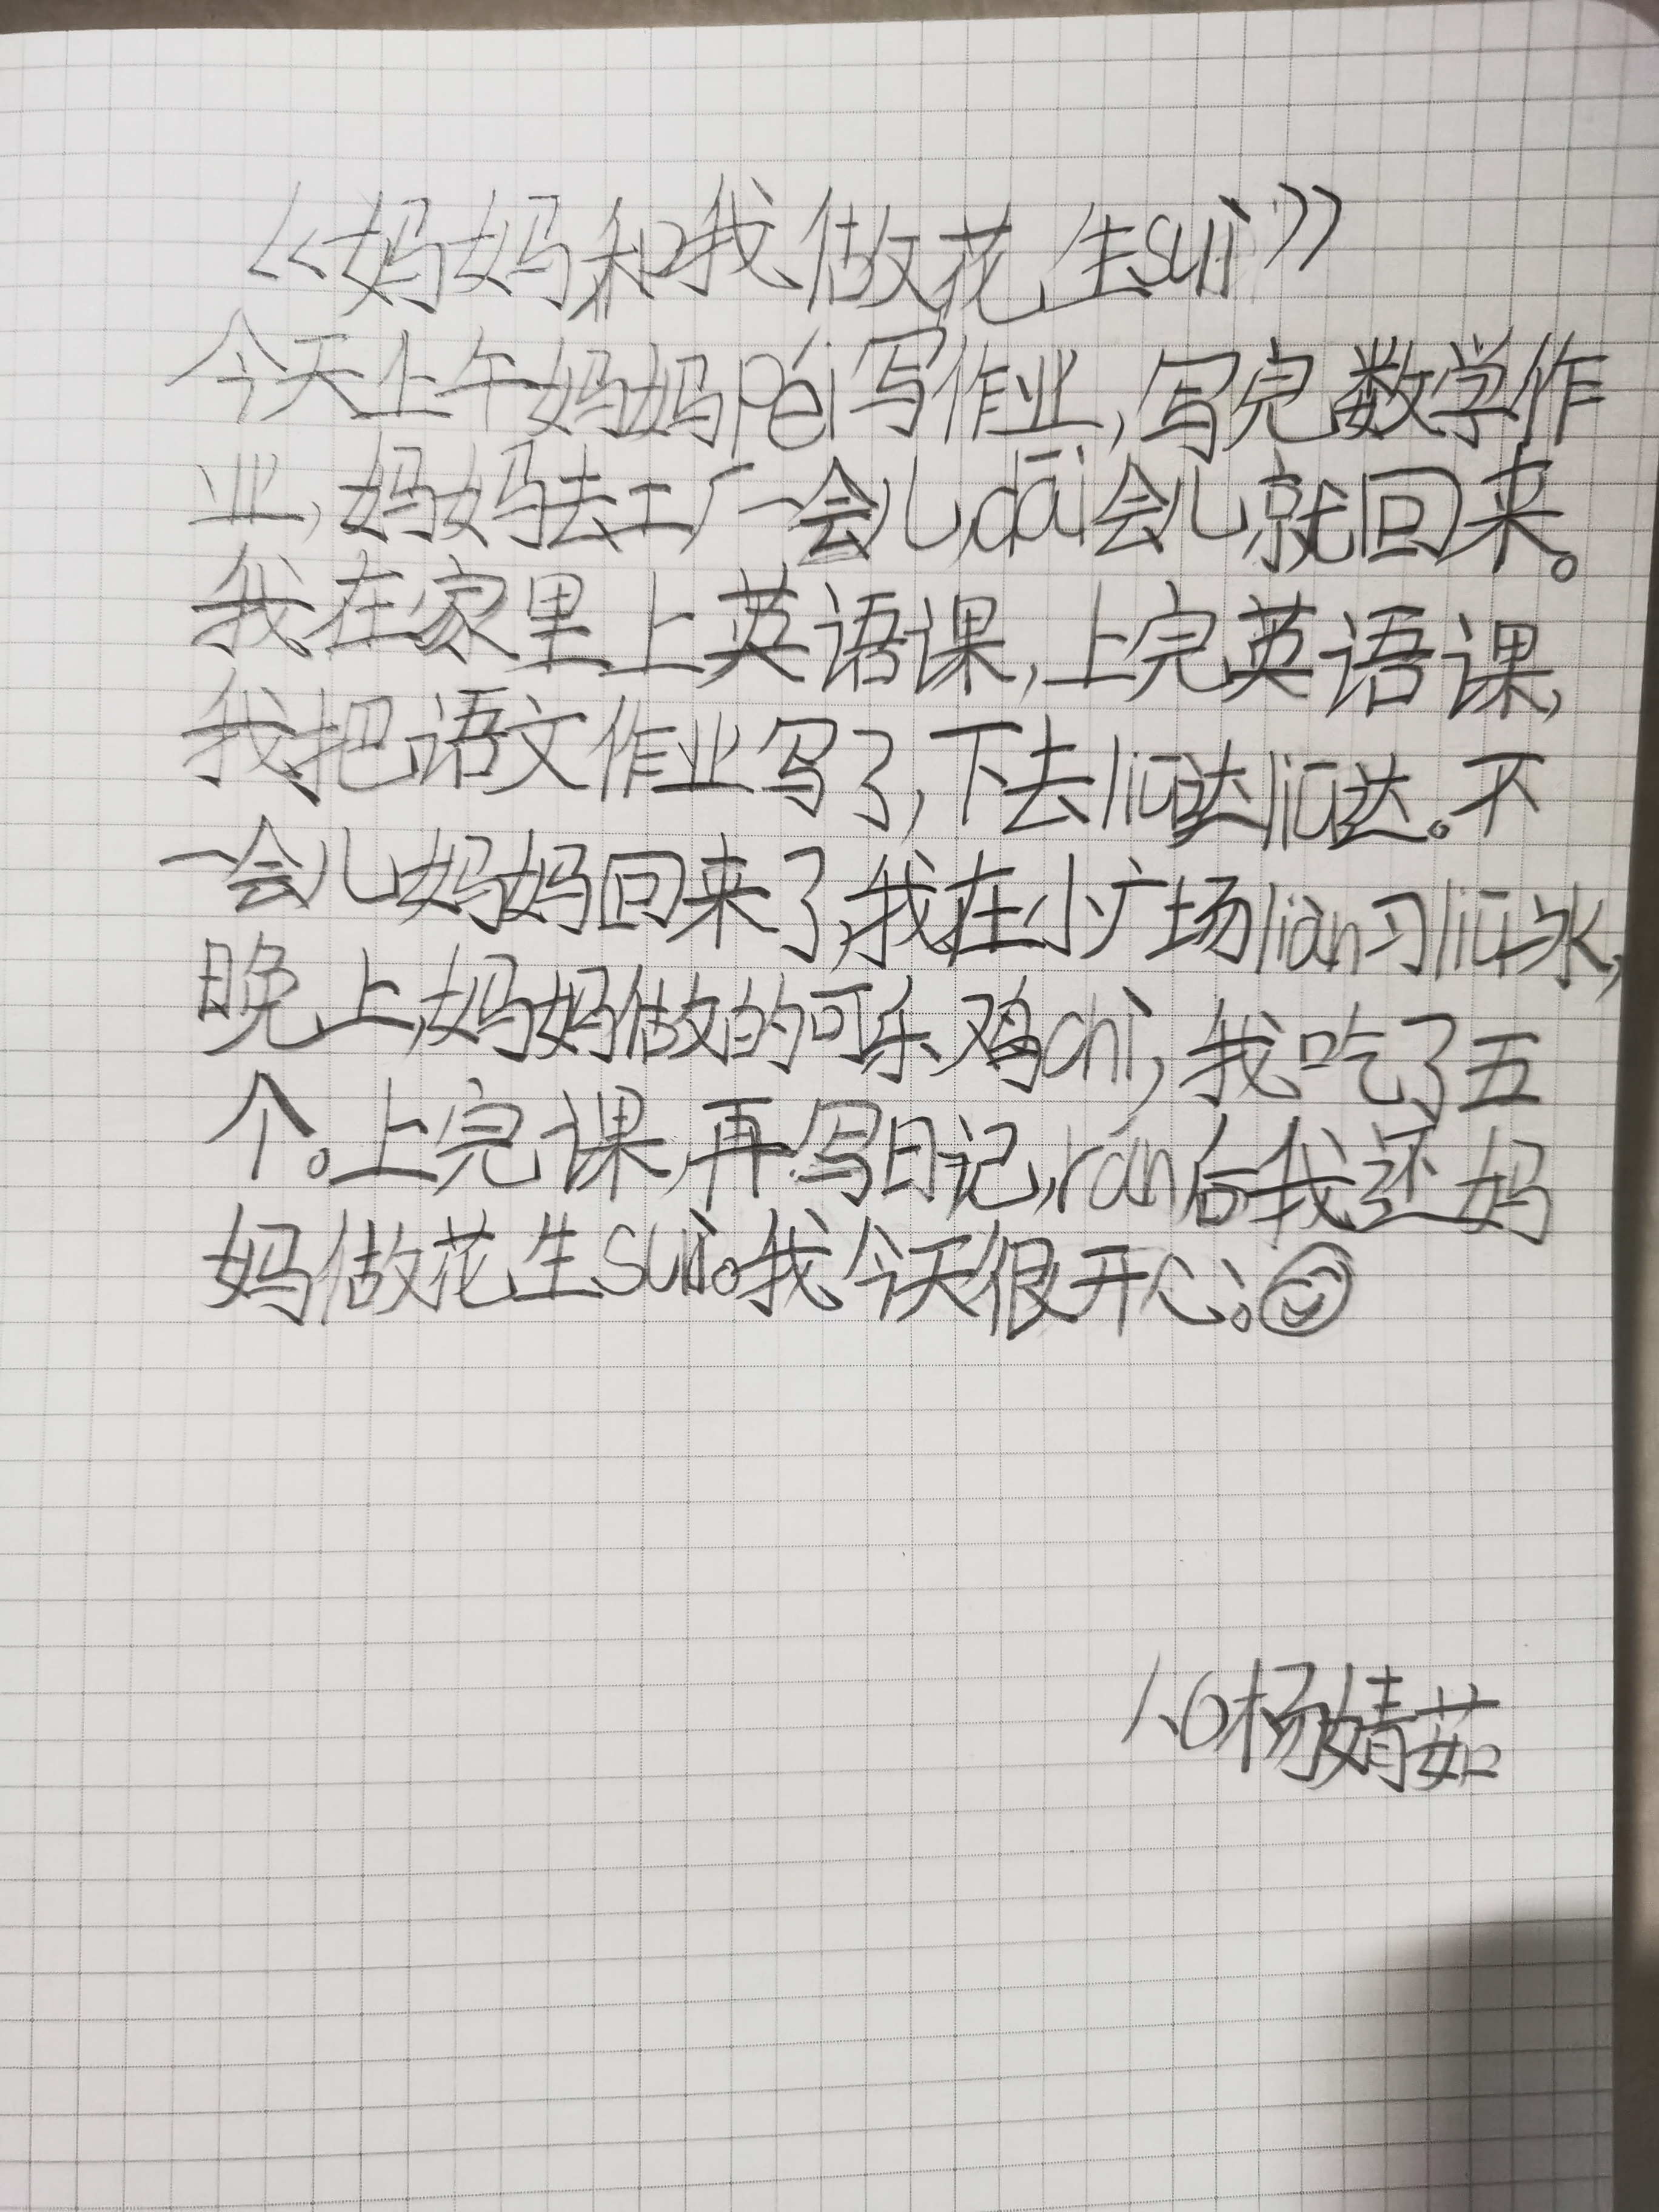 《妈妈和我做花生sui》
今天上午妈妈péi写作业，写完数学作
业，妈妈去工厂一会儿，dāi会儿就回来。
我在家里上英语课，上完英语课，
我把语文作业写了，下去liū达liū达。不
一会儿妈妈回来了，我在小广场lian习liū冰，
晚上，妈妈做的可乐鸡chì，我吃了五
个。上完课，再写日记，rán后我还妈
妈做花生sui。我今天很开心。
1.6杨婧茹